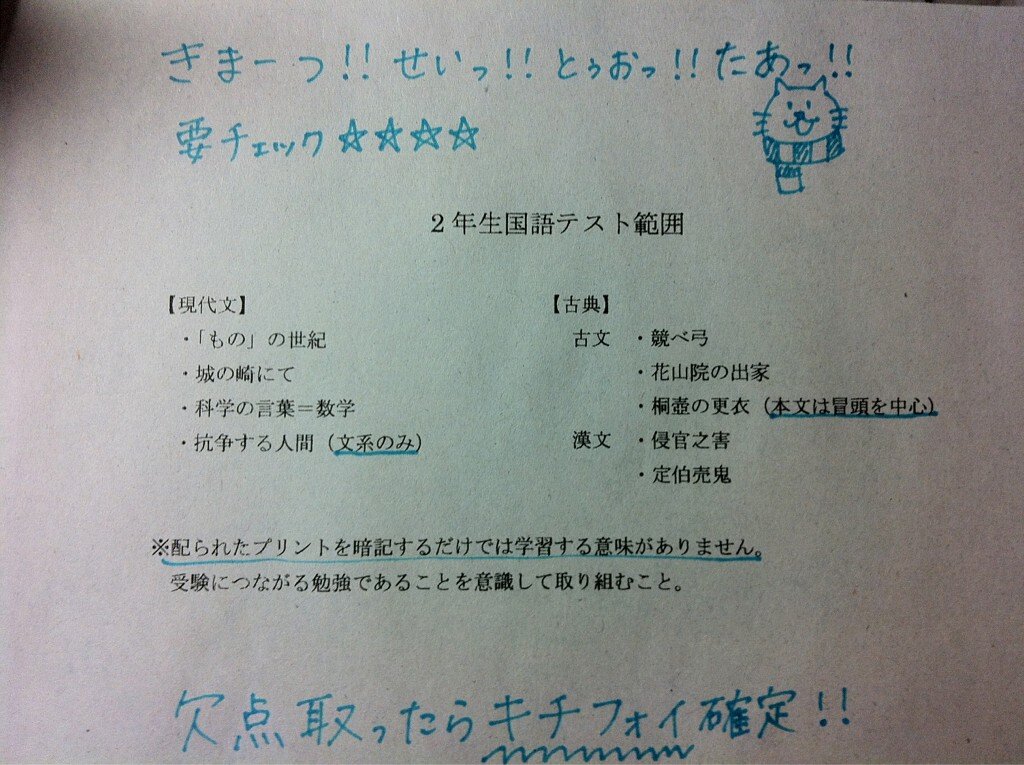 きまーつ!! せいっ!! とぅおっ!! たあっ!!
要チェック☆☆☆☆
2年生国語テスト範囲
【現代文】
・「もの」の世紀
・城の崎にて
・科学の言葉＝数学
・抗争する人間（文系のみ）
【古典】
古文 ・競べ弓
・花山院の出家
・桐壺の更衣（本文は冒頭を中心）
漢文 ・侵官之害
・定伯売鬼
※配られたプリントを暗記するだけでは学習する意味がありません。
受験につながる勉強であることを意識して取り組むこと。
欠点取ったらキチフォイ確定!!